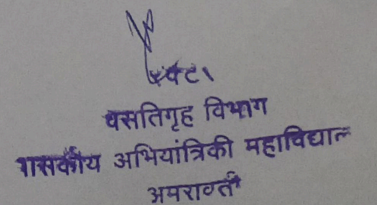 वसतिगृह विभाग
शासकीय अभियांत्रिकी महाविद्याल
अमरावती